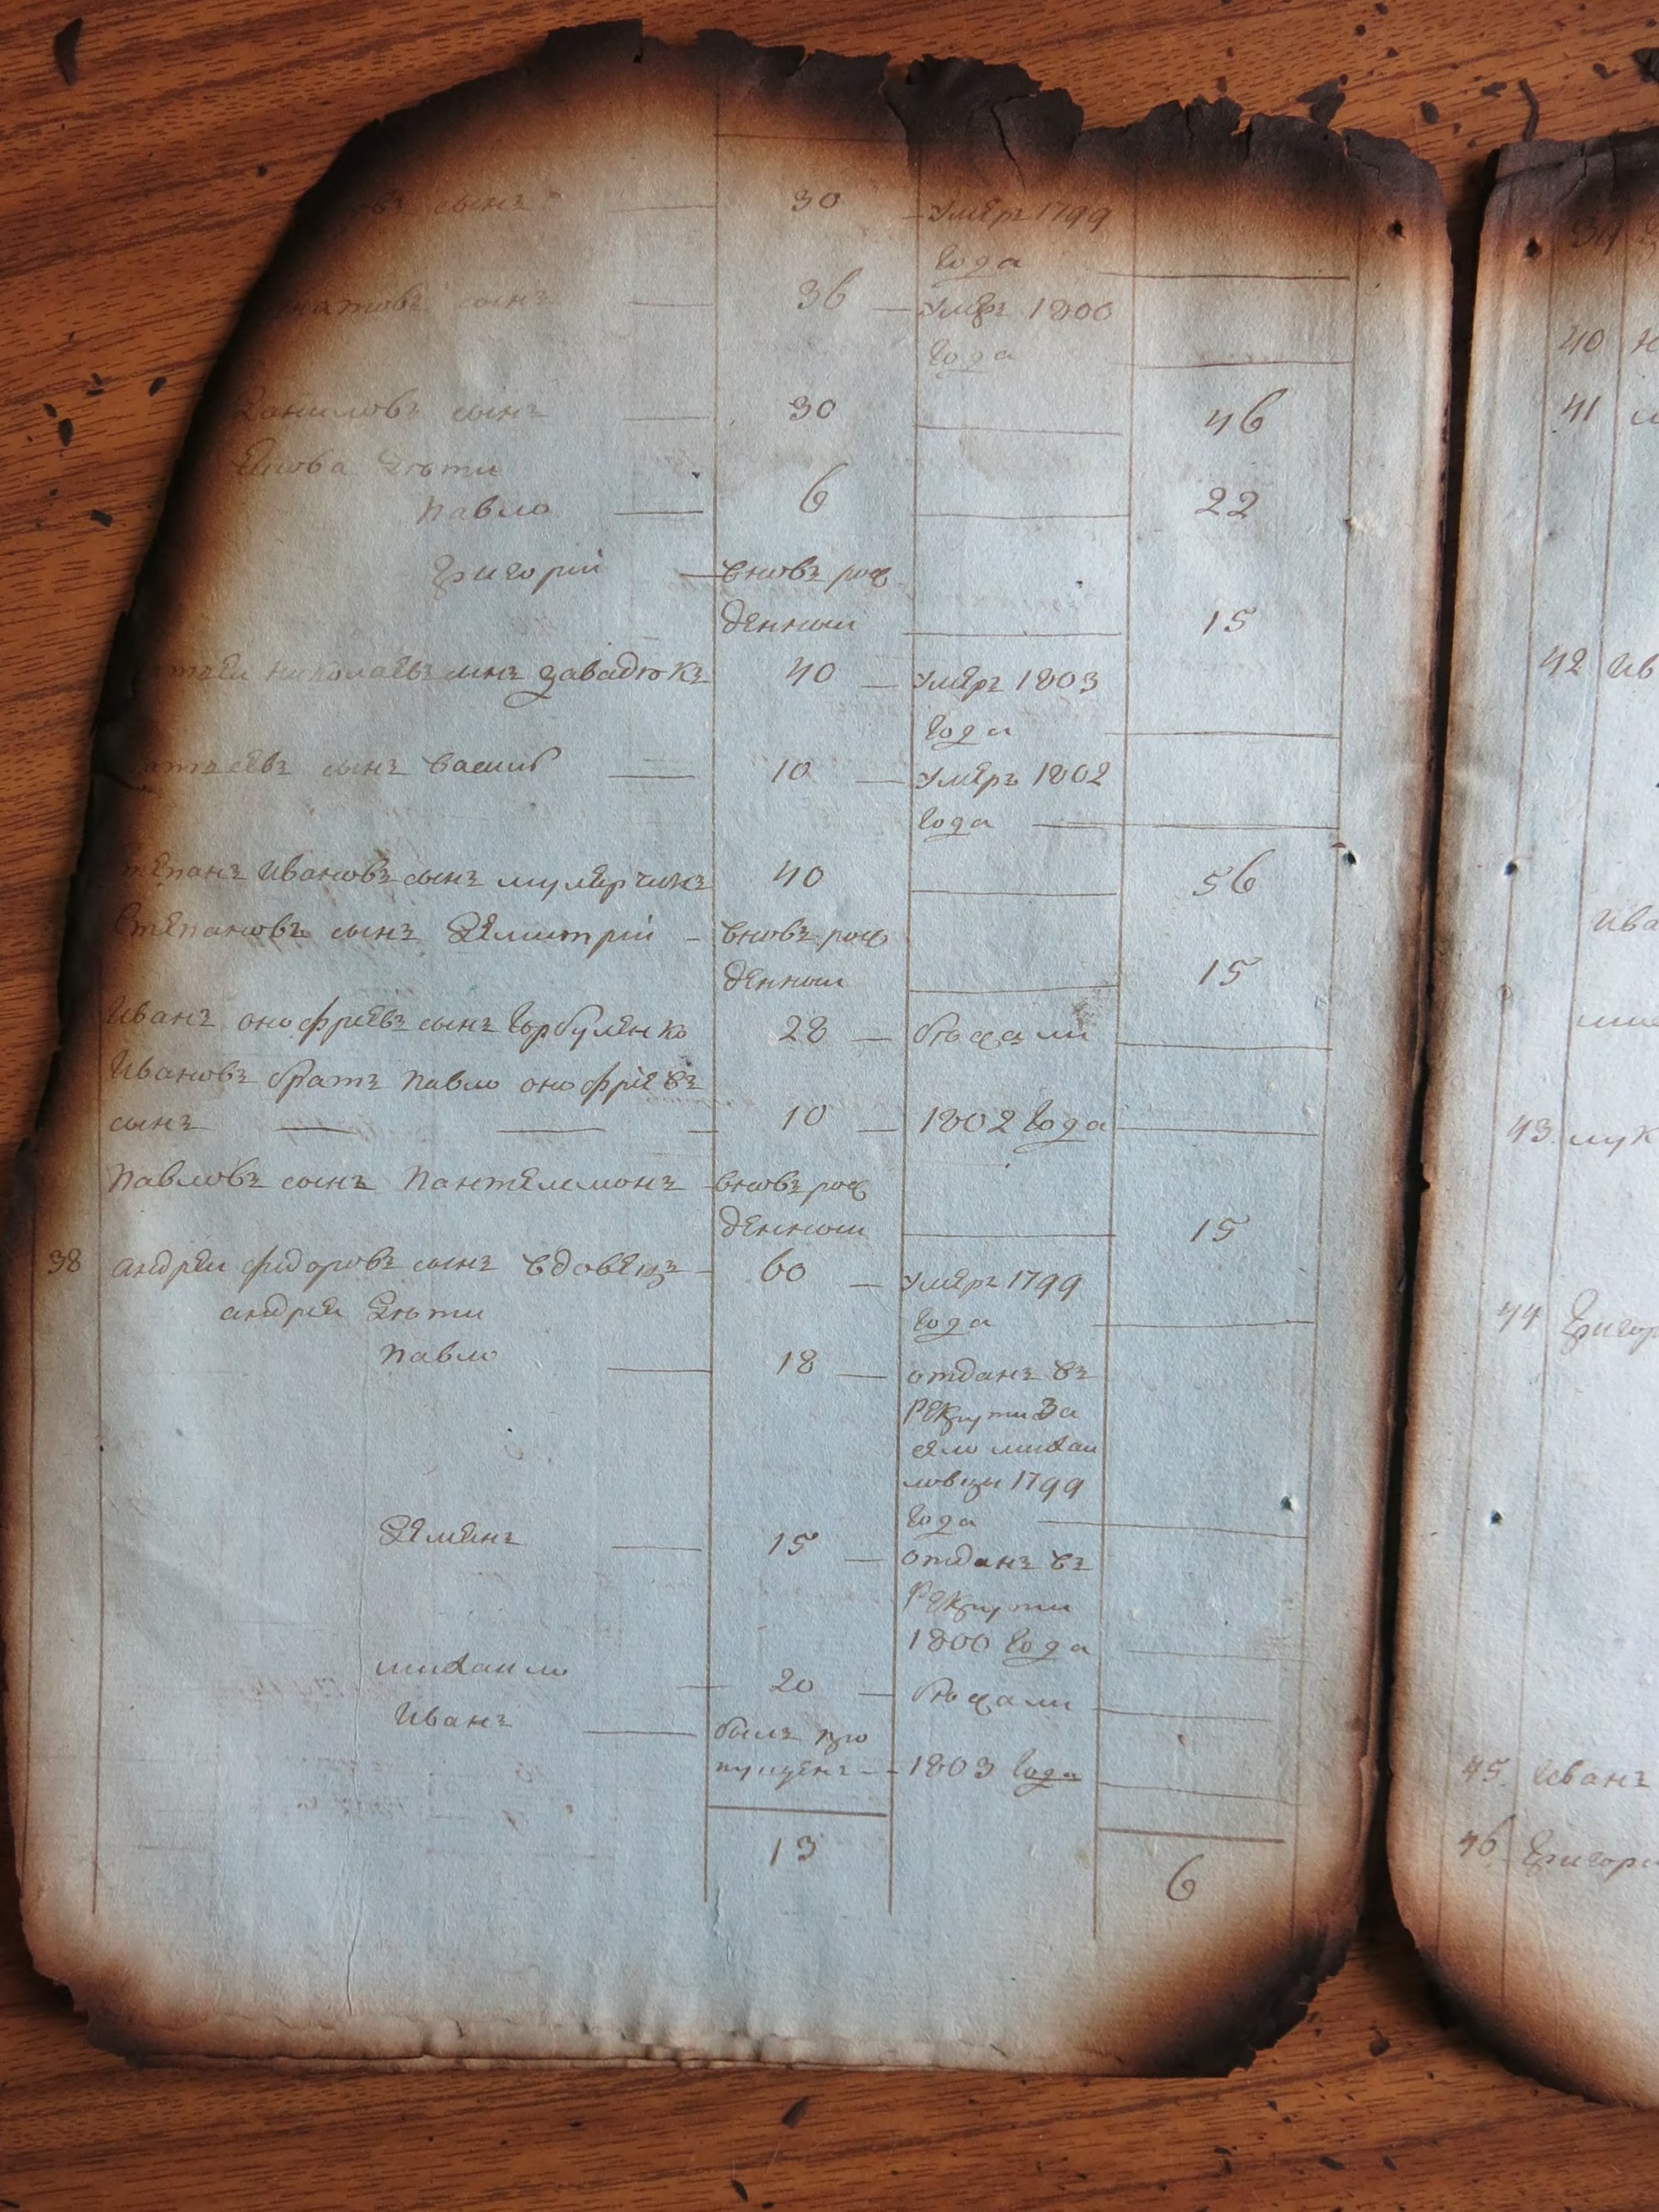 сынъ 30 умеръ 1799
года
сынъ 36 умеръ 1800
года
Даниловъ сынъ 30 46
дѣти
Павло 6 22
Григорій вновь рож
денный 15
Николаевъ сынъ Завадюкъ 40 умеръ 1803
года
сынъ Василь 10 умеръ 1802
года
Степанъ Ивановъ сынъ 40 56
Степановъ сынъ Демитрій вновь рож
денный 15
Иванъ Онофріевъ сынъ Горбуленко 28 бѣжали
Ивановъ братъ Павло Онофріевъ
сынъ 10 1802 года
Павловъ сынъ Пантелемонъ вновь рож
денный 15
38 Андреи Федоровъ сынъ Вдовецъ 60 умеръ 1799
Андрея дѣти года
Павло 18 отданъ въ
рекруты за
село Михаи
ловцы 1799
года
Семенъ 15 отданъ въ
рекруты
1800 года
Михаило 20 бѣжали
Иванъ былъ про
пущенъ 1803 года
13 6
40
41
42 Ив
Ива
43 Лук
44 Григор
45 Иванъ
46 Григори